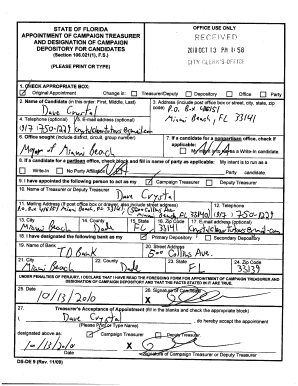 STATE OF FLORIDA
APPOINTMENT OF CAMPAIGN TREASURER
AND DESIGNATION OF CAMPAIGN
DEPOSITORY FOR CANDIDATES
(Section 106.021(1), F.S.)
(PLEASE PRINT OR TYPE)
OFFICE USE ONLY
RECEIVED
2010 OCT 13 PM 1:58
CITY CLERK'S OFFICE
1. CHECK APPROPRIATE BOX:
Original Appointment Change in: Treasurer/Deputy Depository Office Party
2. Name of Candidate (in this order: First, Middle, Last)
Dave Crystal
3. Address (include post office box or street, city, state, zip code)
P.O. Box
Miami Beach, FL 33141
4. Telephone (optional) 5. E-mail address (optional)
6. Office sought (include district, circuit, group number)
Mayor of Miami Beach
7. If a candidate for a nonpartisan office, check if applicable:
My intent is to run as a Write-In candidate.
8. If a candidate for a partisan office, check block and fill in name of party as applicable: My intent is to run as a
Write-In No Party Affiliation Party candidate.
9. I have appointed the following person to act as my Campaign Treasurer Deputy Treasurer
10. Name of Treasurer or Deputy Treasurer
Dave Crystal
11. Mailing Address (if post office box or drawer, also include street address)
12. Telephone
13. City
Miami Beach
14. County
Dade
15. State
FL
16. Zip Code
33141
17. E-mail address (optional)
18. I have designated the following bank as my Primary Depository Secondary Depository
19. Name of Bank
TD Bank
20. Street Address
Collins Ave.
21. City
Miami Beach
22. County
Dade
23. State
FL
24. Zip Code
33139
UNDER PENALTIES OF PERJURY, I DECLARE THAT I HAVE READ THE FOREGOING FORM FOR APPOINTMENT OF CAMPAIGN TREASURER AND DESIGNATION OF CAMPAIGN DEPOSITORY AND THAT THE FACTS STATED IN IT ARE TRUE.
25. Date
10/13/2010
26. Signature of Candidate
X
27. Treasurer's Acceptance of Appointment (fill in the blanks and check the appropriate block)
I, Dave Crystal, do hereby accept the appointment
(Please Print or Type Name)
designated above as: Campaign Treasurer Deputy Treasurer.
X
Date
Signature of Campaign Treasurer or Deputy Treasurer
DS-DE 9 (Rev. 11/09)